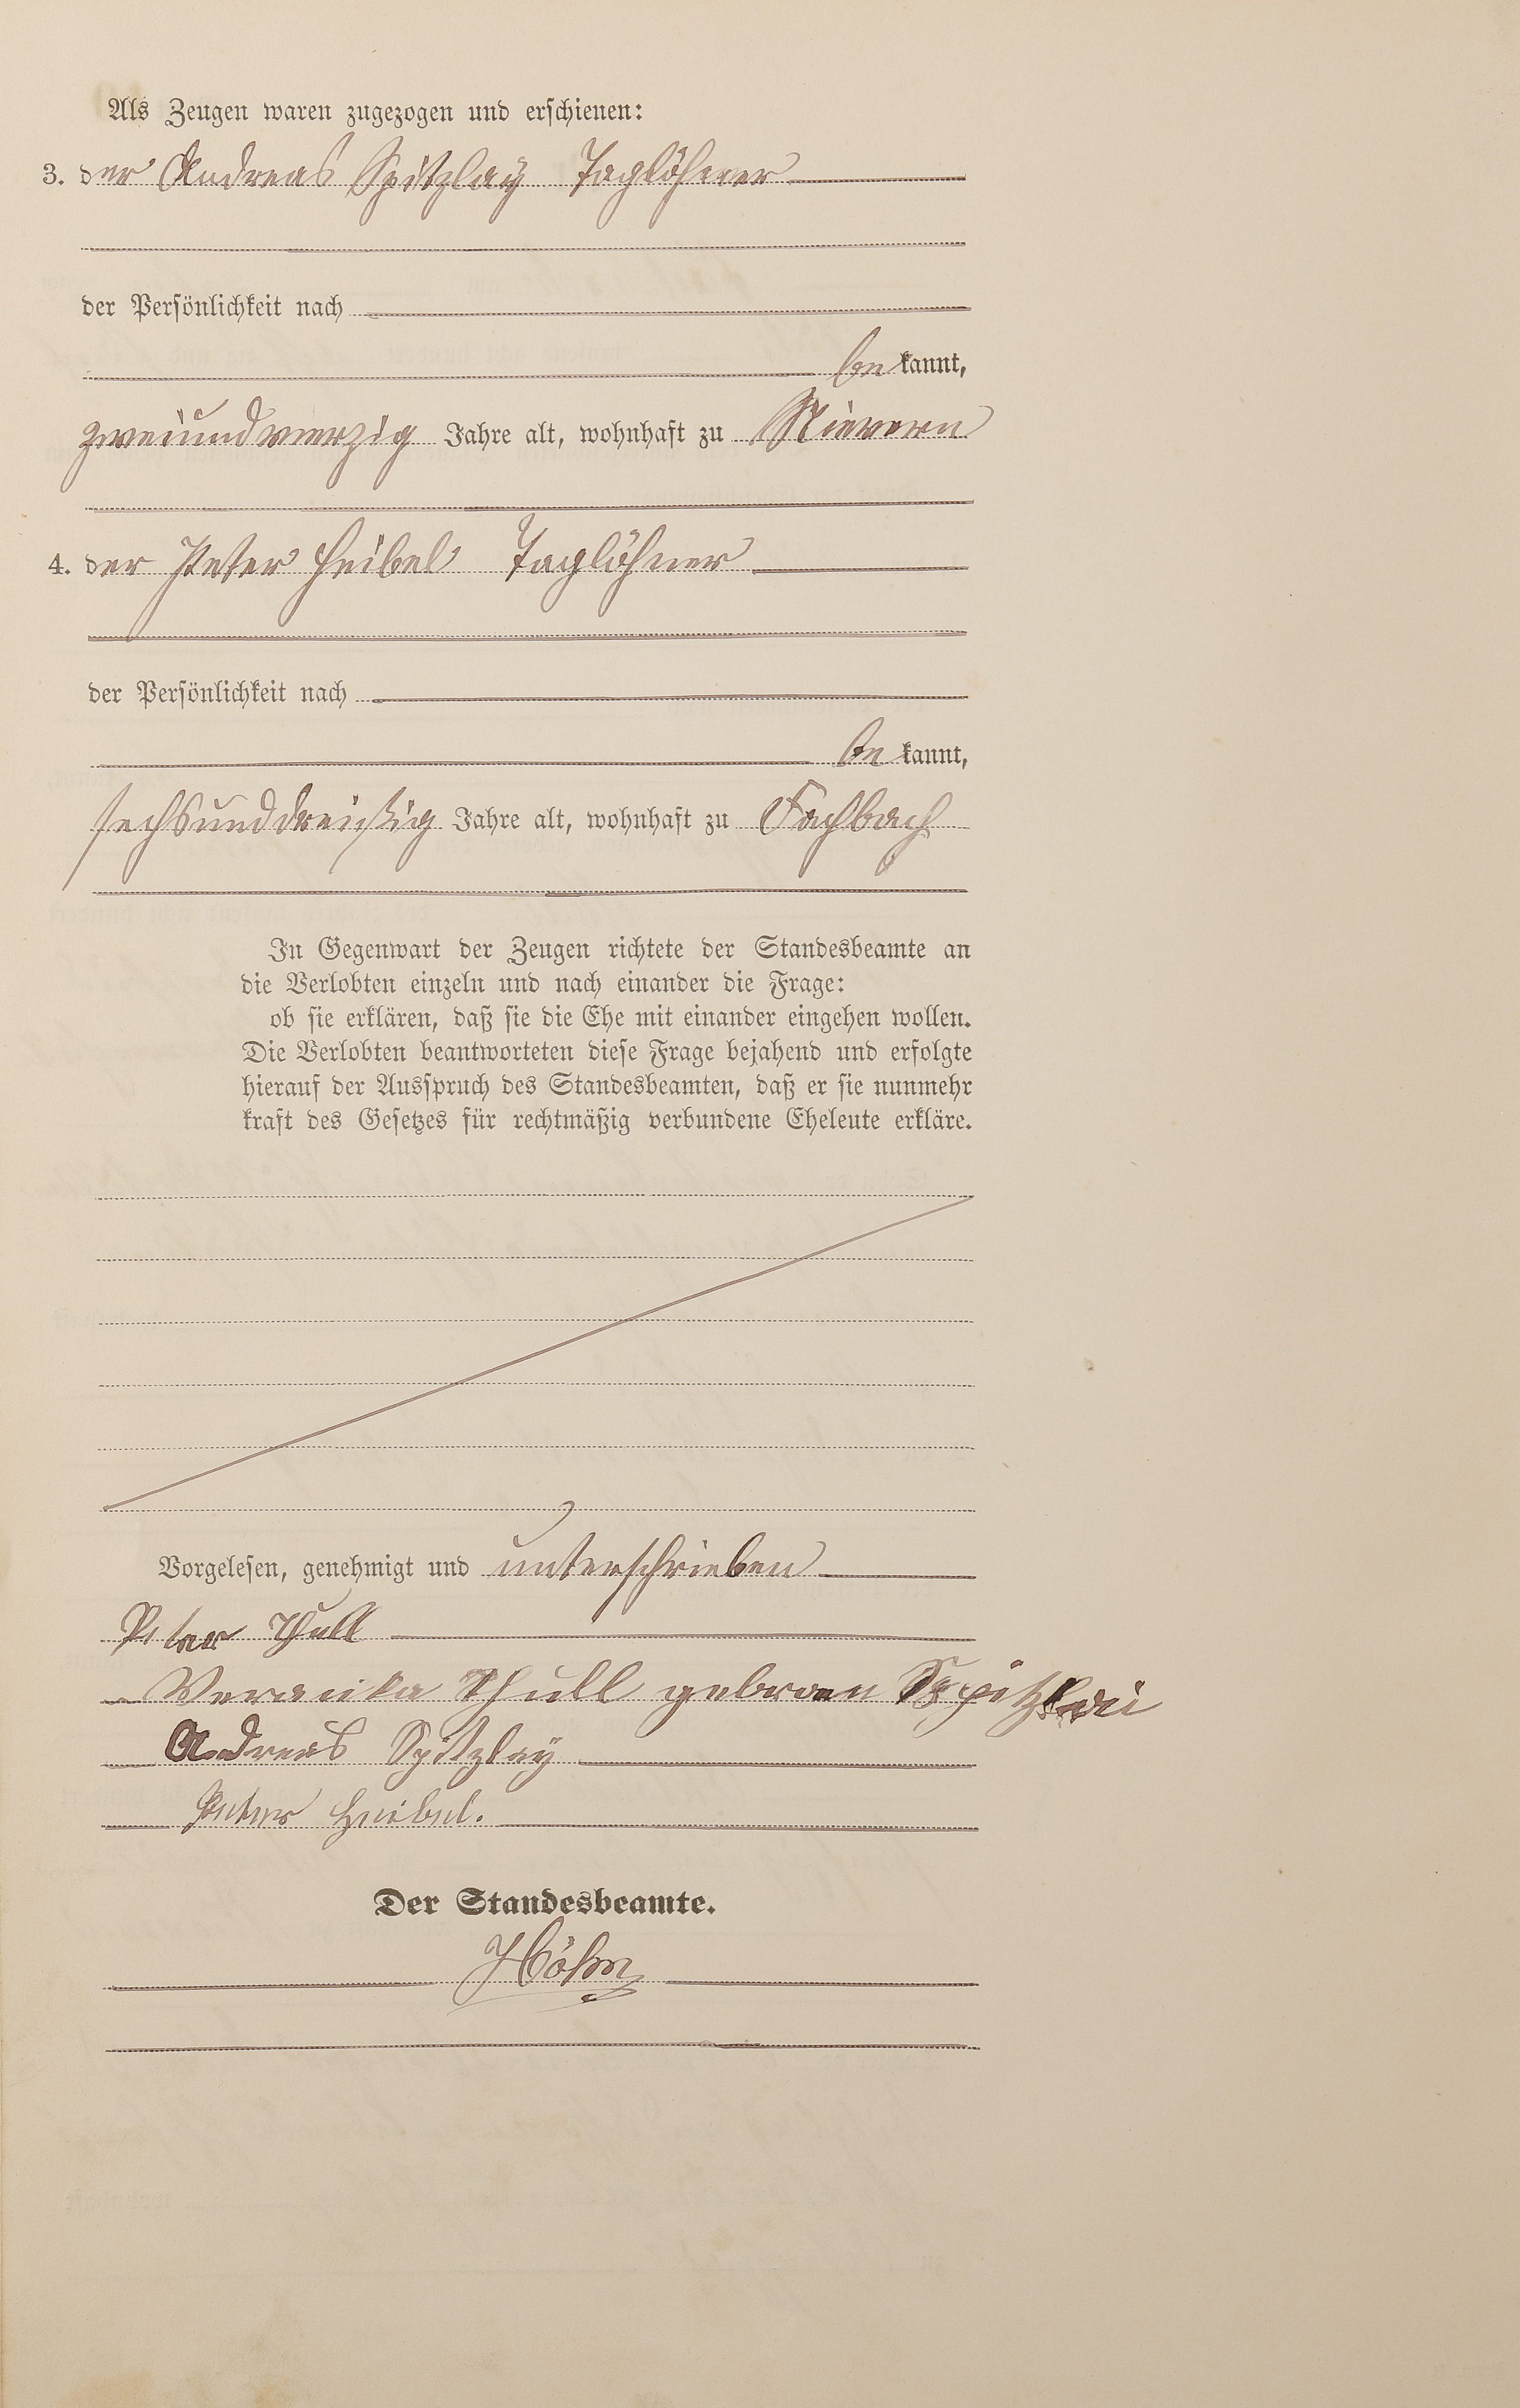 Als Zeugen waren zugezogen und erschienen:
3. der Andreas Spitzlay Taglöhner
der Persönlichkeit nach
be kannt,
zweiundvierzig Jahre alt, wohnhaft zu Nievern
4. der Peter Heibel Taglöhner
der Persönlichkeit nach
be kannt,
sechsunddreißig Jahre alt, wohnhaft zu Fachbach
In Gegenwart der Zeugen richtete der Standesbeamte an
die Verlobten einzeln und nach einander die Frage:
ob sie erklären, daß sie die Ehe mit einander eingehen wollen.
Die Verlobten beantworteten diese Frage bejahend und erfolgte
hierauf der Ausspruch des Standesbeamten, daß er sie nunmehr
kraft des Gesetzes für rechtmäßig verbundene Eheleute erkläre.
Vorgelesen, genehmigt und unterschrieben
Peter Thull
Veronika Thull gebroen Spitzlei
Andreas Spitzlay
Peter Heibel.
Der Standesbeamte.
Höhn